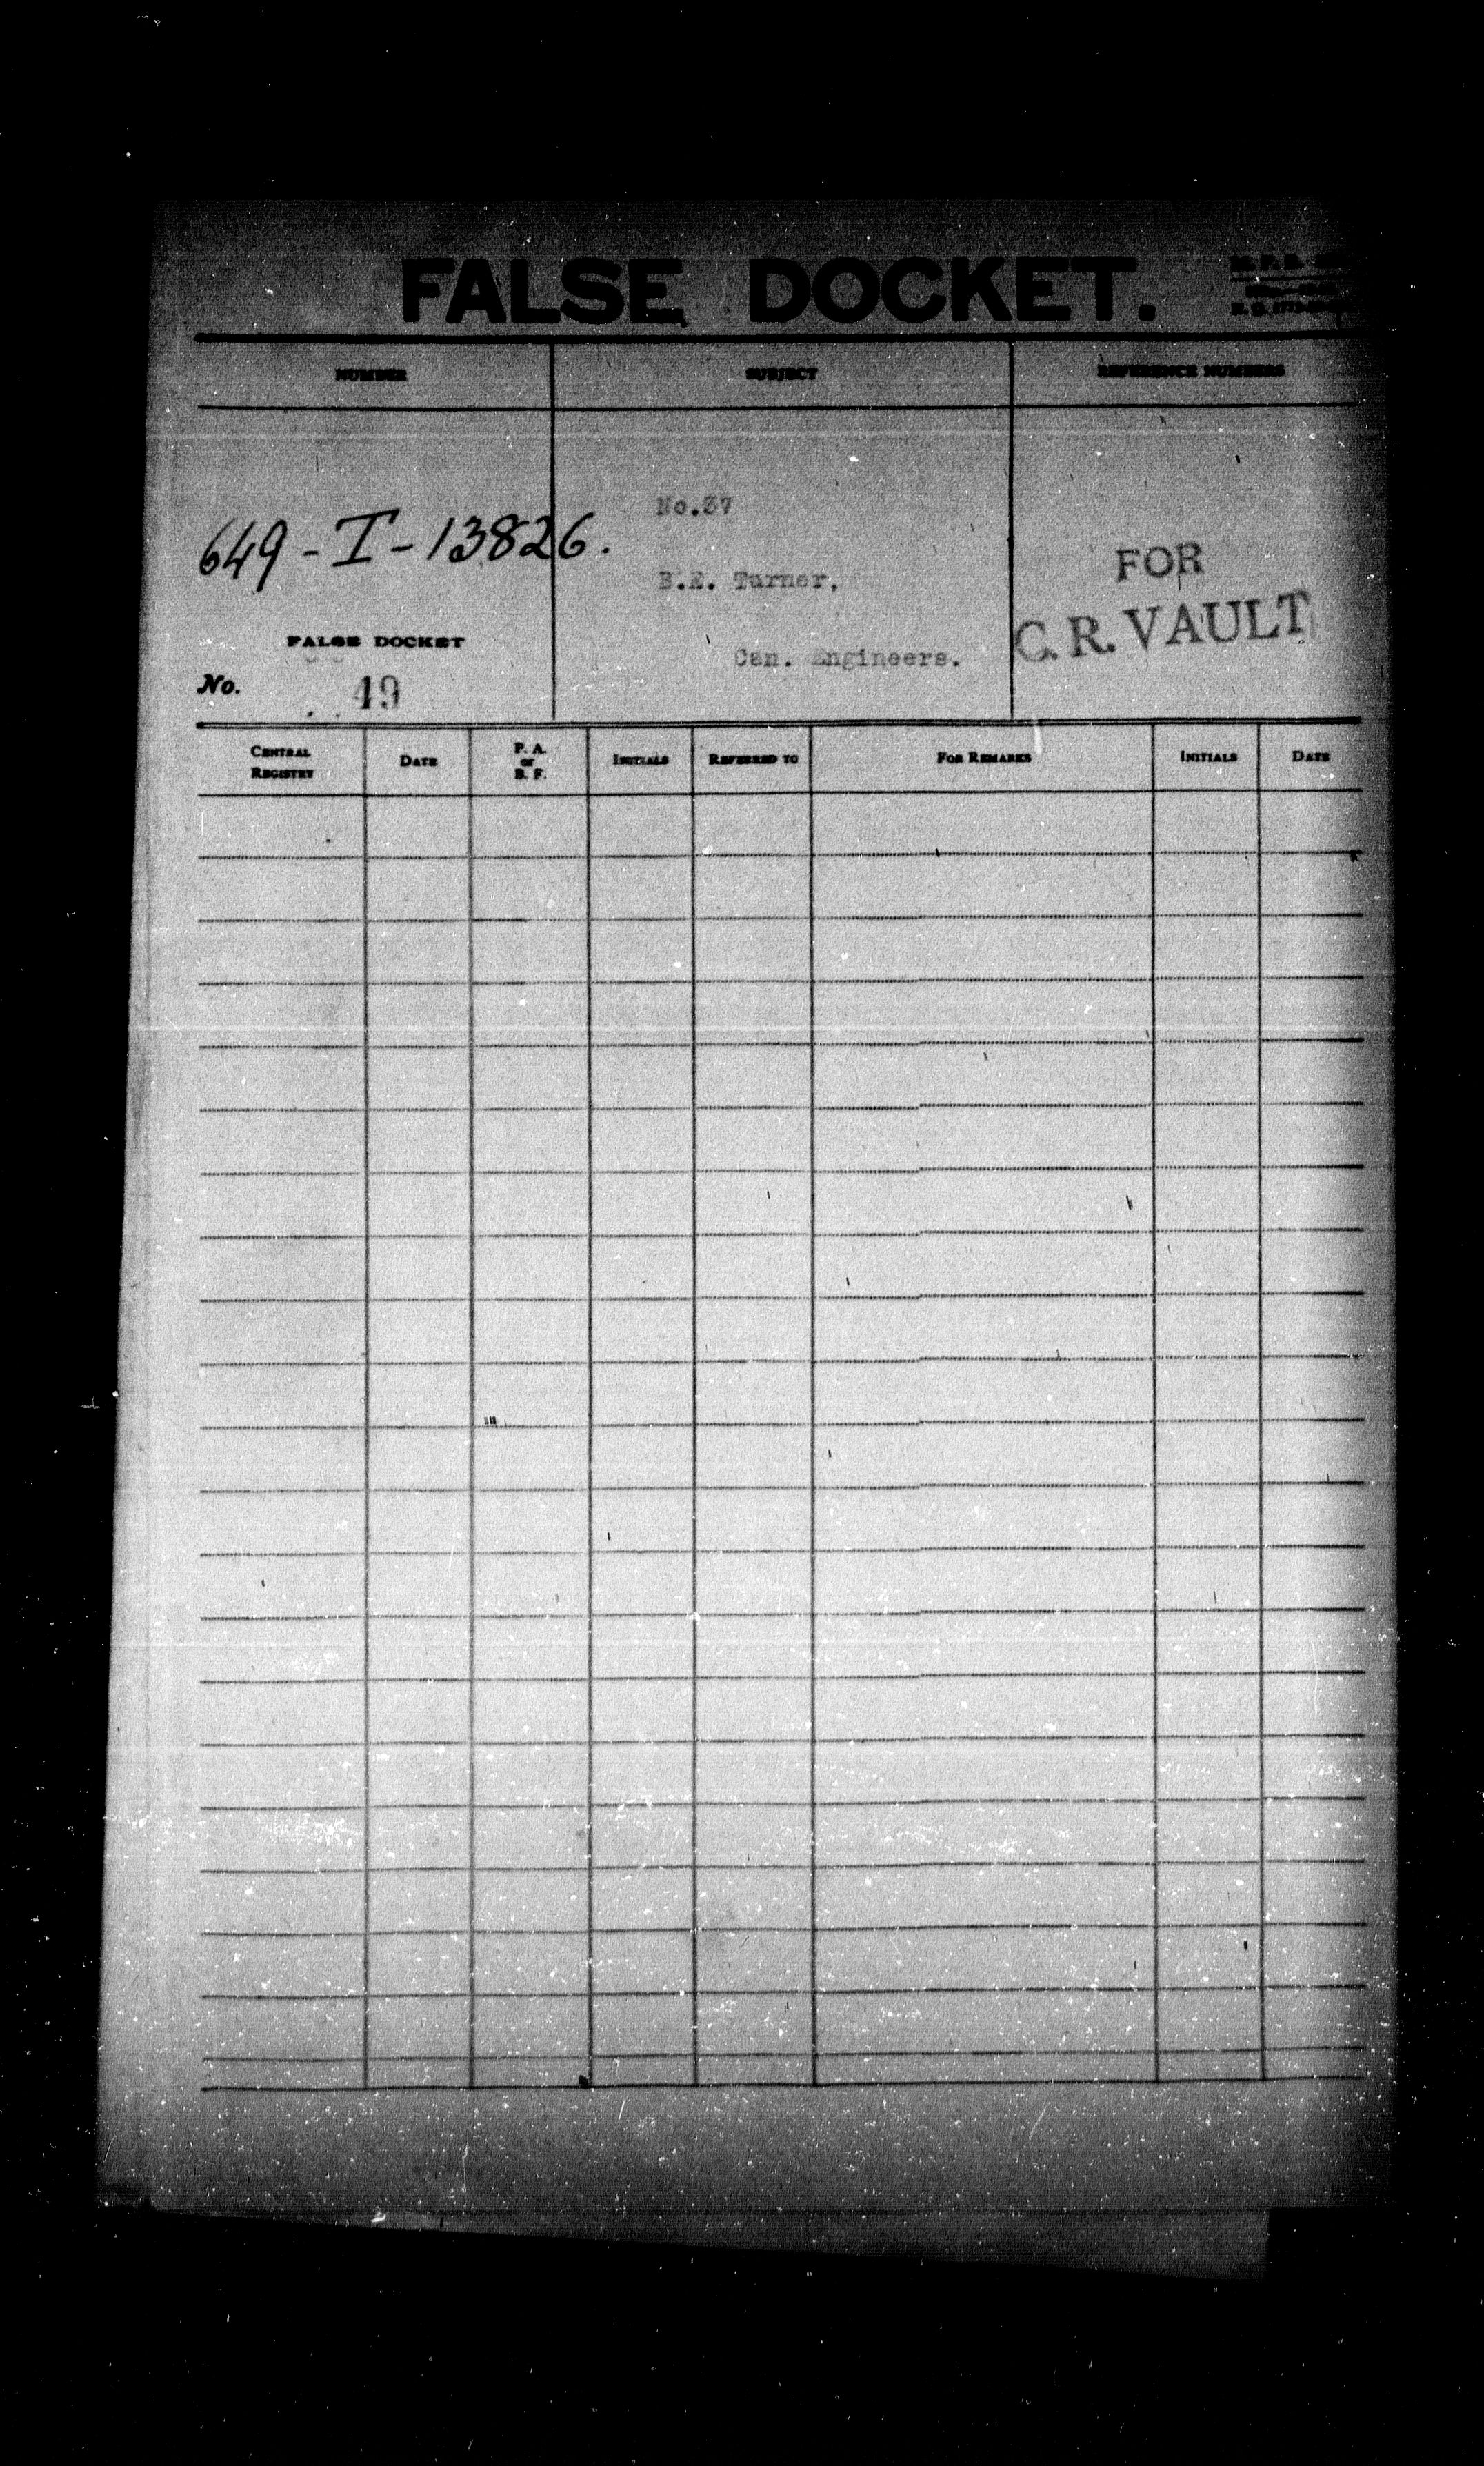 FALSE DOCKET.
NUMBER SUBJECT REFERENCE NUMBERS
No.37
649-I-13826.
FOR
B.E. Turner,
C.R. VAULT
FALSE DOCKET
Can. Engineers.
No. 49
CENTRAL REGISTRY DATE P. A. or B. F. INITIALS REFERRED TO FOR REMARKS INITIALS DATE